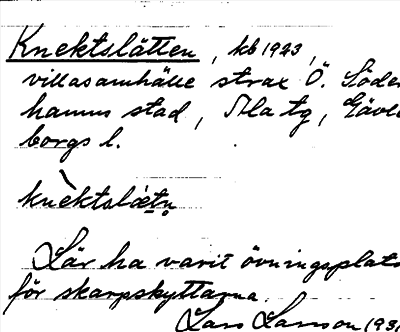 Knektslätten, kb 1923,
villasamhälle strax Ö. Söder
hamns stad, Ala tg, Gävle
borgs l.
knèktslä́tn̥
Lär ha varit övningsplats
för skarpskyttarna.
Lars Larsson 193